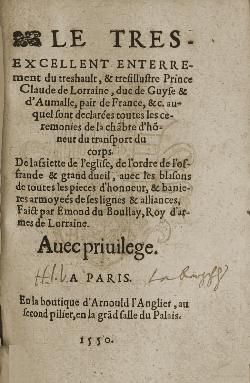 LE TRES-
EXCELLENT ENTERRE-
ment du treshault, & tresillustre Prince
Claude de Lorraine, duc de Guyse &
d'Aumalle, pair de France, &c. au-
quel sont declarées toutes les ce-
remonies de la chãbre d'hõ-
neur du transport du
corps.
De l'assiette de l'eglise, de l'ordre de l'of-
frande & grand dueil, auec les blasons
de toutes les pieces d'honneur, & banie-
res armoyeés de ses lignes & alliances,
Faict par Emond du Boullay, Roy d'ar-
mes de Lorraine.
Auec priuilege.
A PARIS.
En la boutique d'Arnould l'Anglier, au
second pilier, en la grãd salle du Palais.
1550.